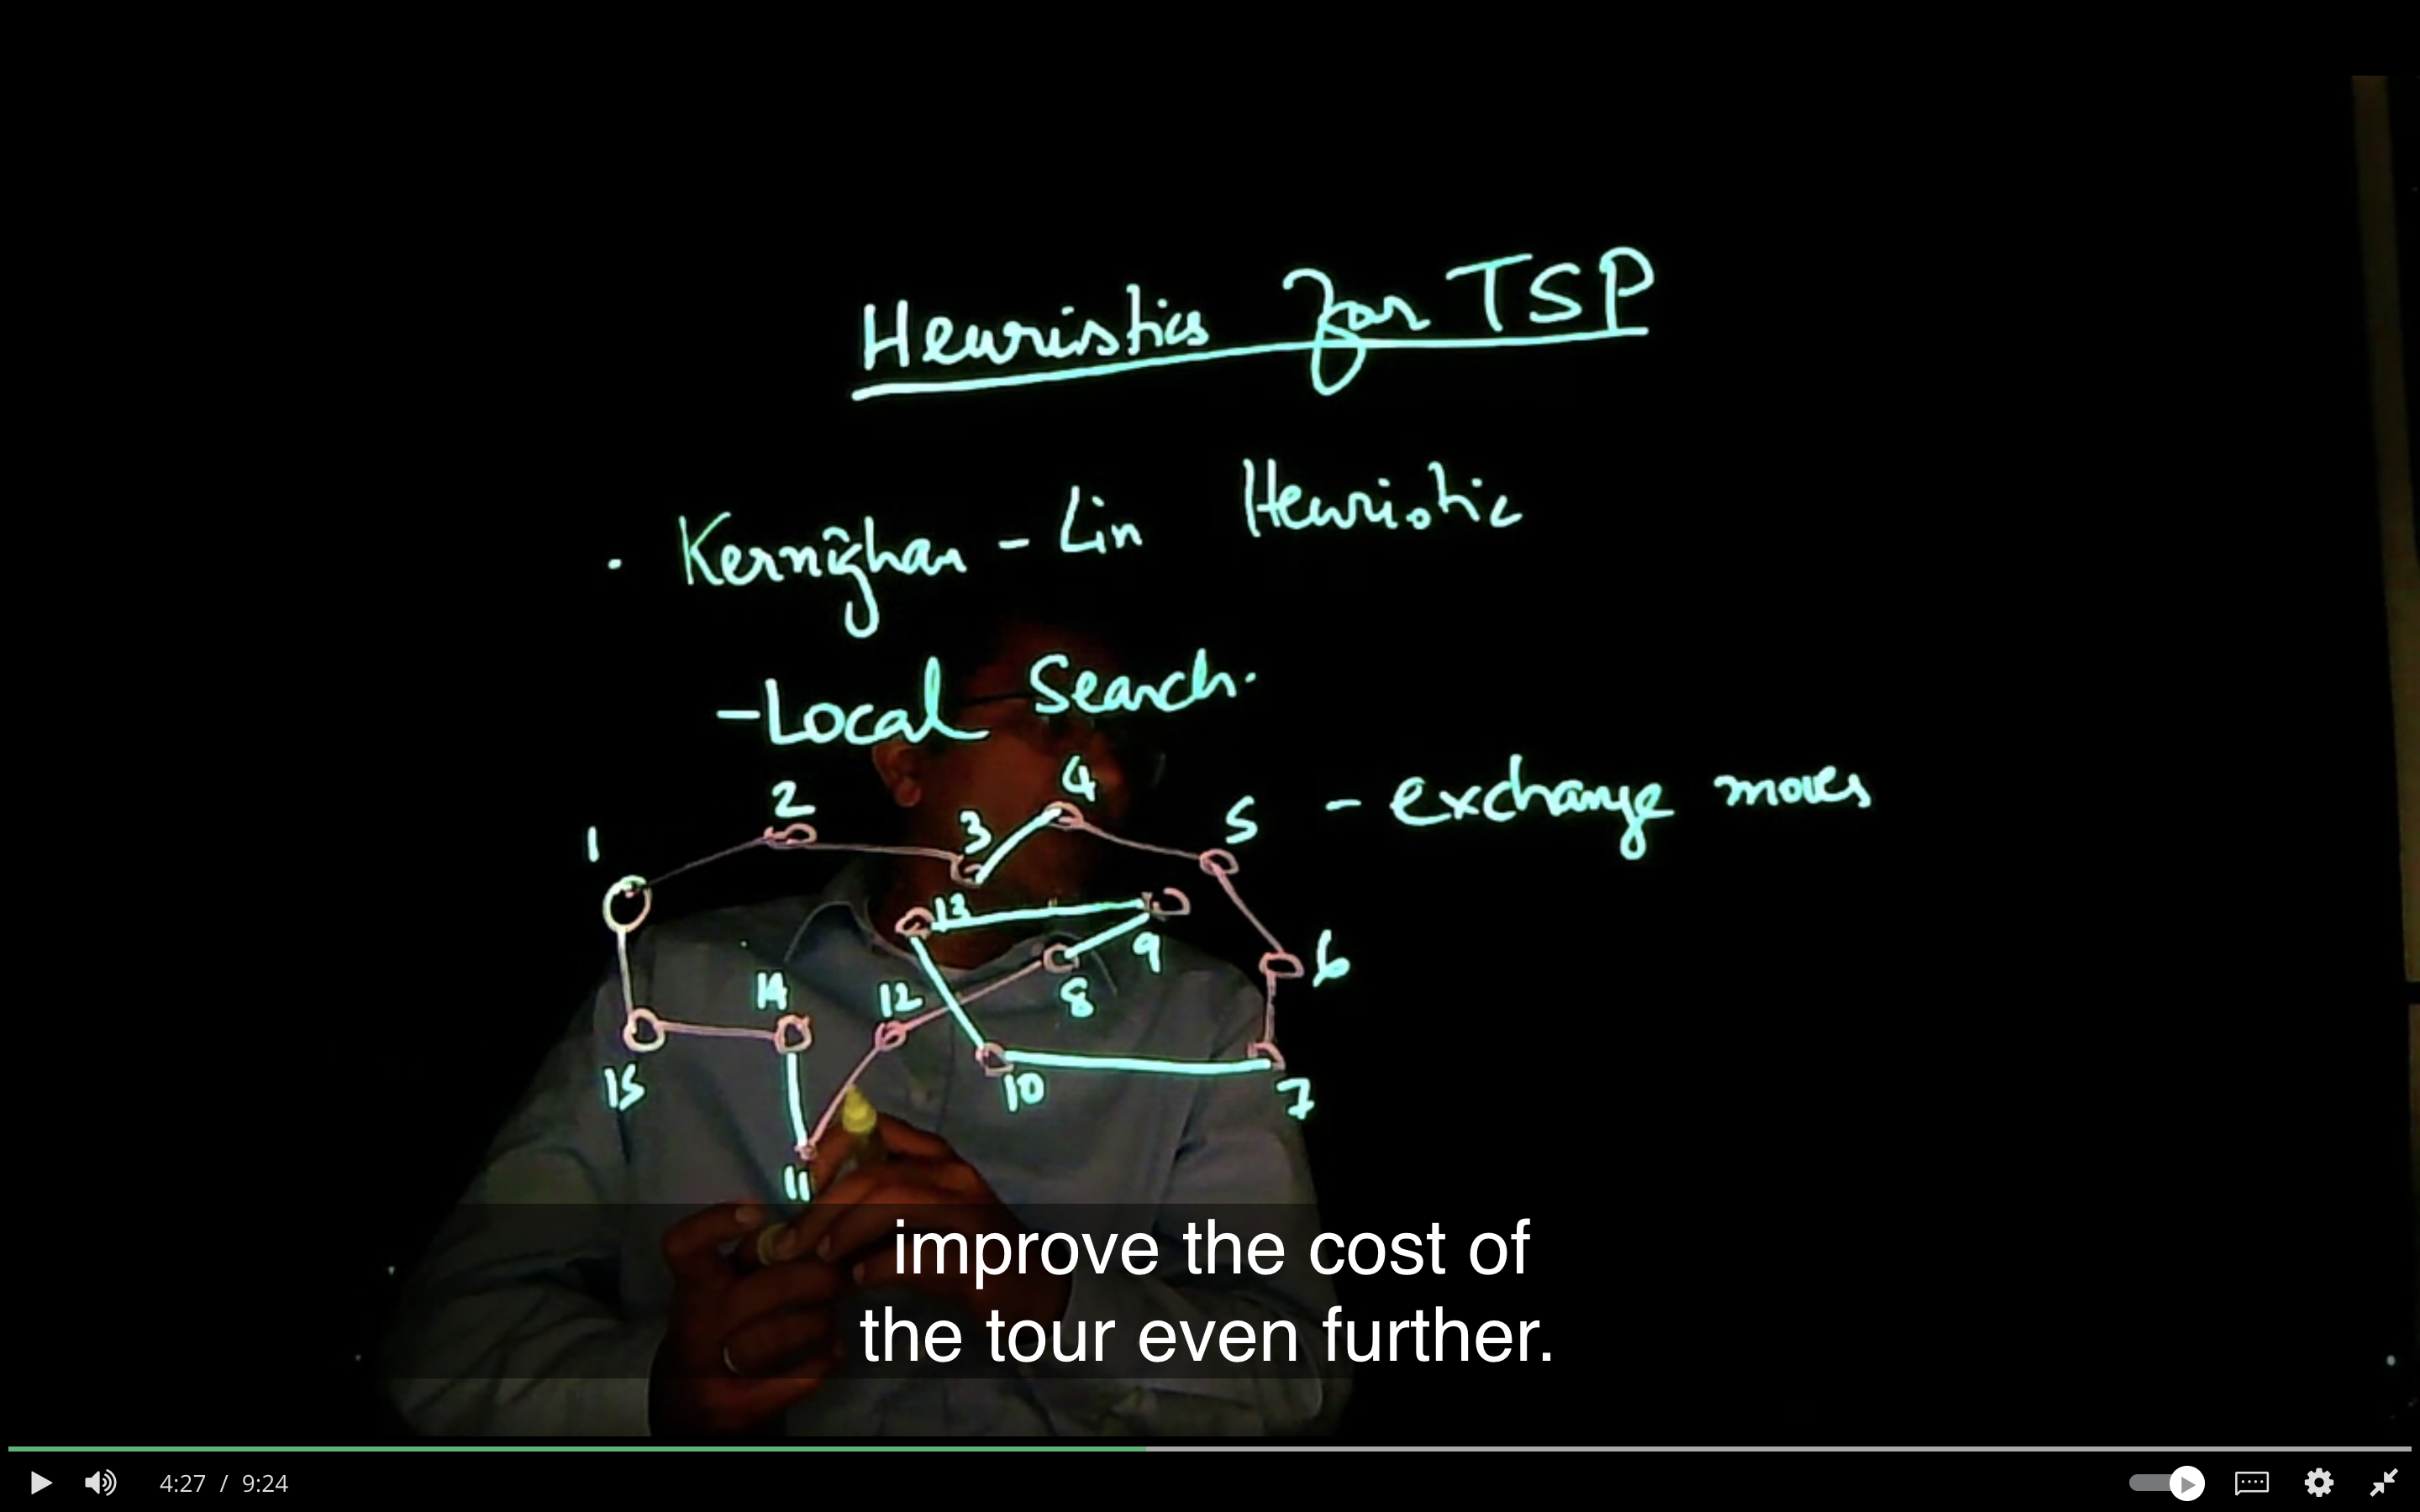 Heuristics for TSP
· Kernighan - Lin Heuristic
- Local Search.
- exchange moves
1
2
3
4
5
6
7
8
9
10
11
12
13
14
15
improve the cost of
the tour even further.
4:27 / 9:24